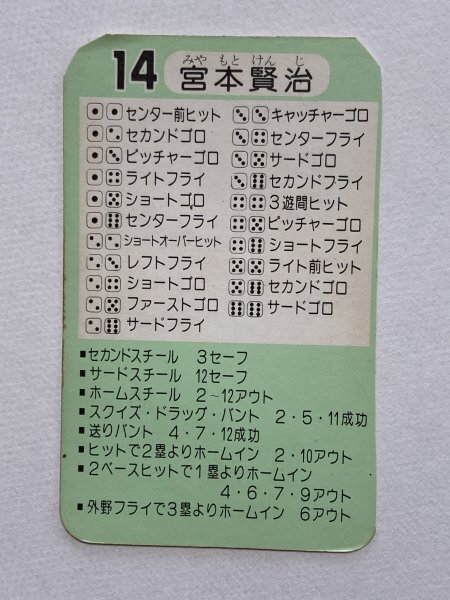 みや もと けん じ
14 宮本賢治
⚀⚀センター前ヒット
⚀⚁セカンドゴロ
⚀⚂ピッチャーゴロ
⚀⚃ライトフライ
⚀⚄ショートゴロ
⚀⚅センターフライ
⚁⚁ショートオーバーヒット
⚁⚂レフトフライ
⚁⚃ショートゴロ
⚁⚄ファーストゴロ
⚁⚅サードフライ
⚂⚂キャッチャーゴロ
⚂⚃センターフライ
⚂⚄サードゴロ
⚂⚅セカンドフライ
⚃⚃3遊間ヒット
⚃⚄ピッチャーゴロ
⚃⚅ショートフライ
⚄⚄ライト前ヒット
⚄⚅セカンドゴロ
⚅⚅サードゴロ
■セカンドスチール 3セーフ
■サードスチール 12セーフ
■ホームスチール 2~12アウト
■スクイズ・ドラッグ・バント 2・5・11成功
■送りバント 4・7・12成功
■ヒットで2塁よりホームイン 2・10アウト
■2ベースヒットで1塁よりホームイン
4・6・7・9アウト
■外野フライで3塁よりホームイン 6アウト